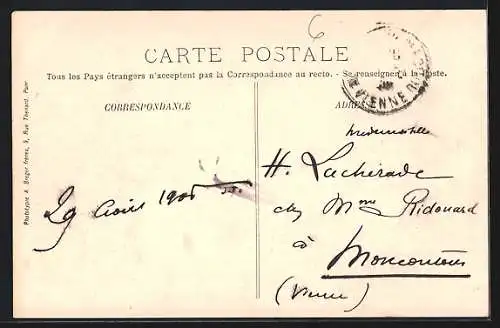 6
CARTE POSTALE
Tous les Pays étrangers n'acceptent pas la Correspondance au recto. - Se renseigner à la Poste.
CORRESPONDANCE
ADRESSE
Mademoiselle
H. Lacherade
chez Mme Ridouard
à
Moncontour
(Vienne)
29
VIENNE
Phototype A. Breger frères, 9, Rue Thénard, Paris